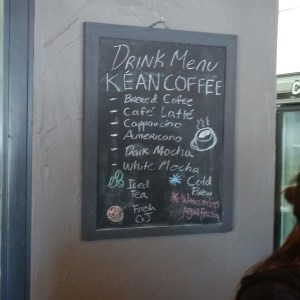 DRINK MENU
KÉAN COFFEE
- Brewed Coffee
- Café Latté
- Cappuccino
- Americano
- Dark Mocha
- White Mocha
Iced Tea
Cold Brew
Fresh OJ
Watermelon Agua Fresca